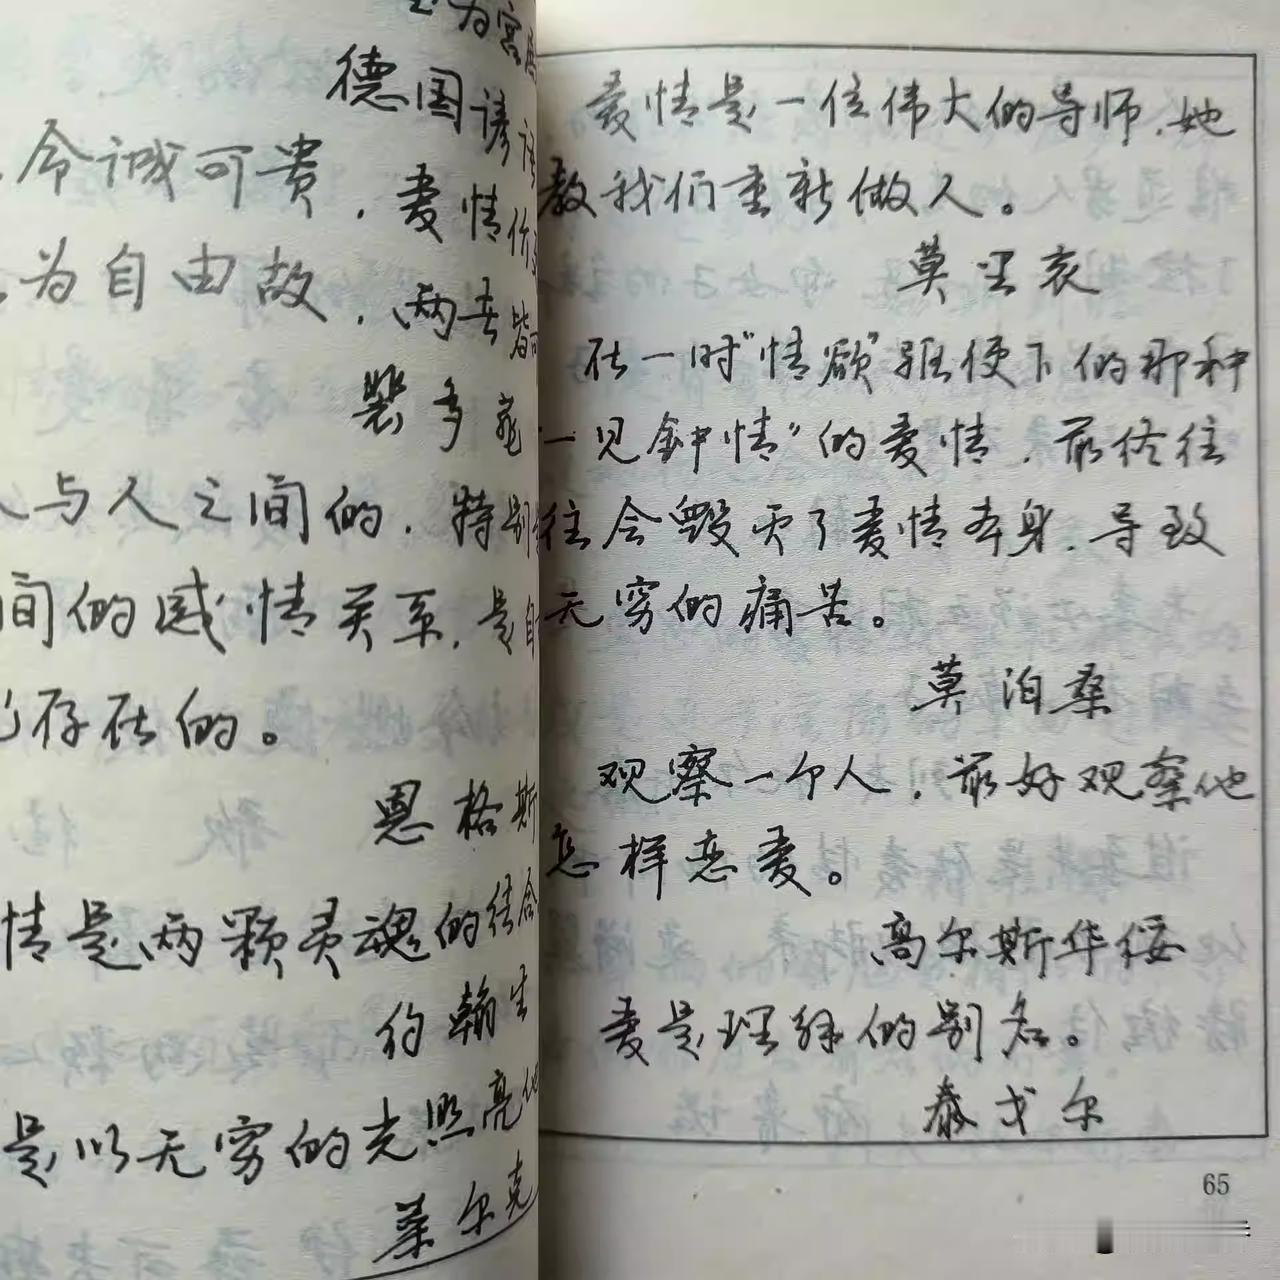 为寓
德国谚语
命诚可贵，爱情价
为自由故，两者皆可
裴多菲
人与人之间的，特别
间的感情关系，是自
存在的。
恩格斯
情是两颗灵魂的结合
约翰生
是以无穷的光照亮他
莱尔克
爱情是一位伟大的导师，她
教我们重新做人。
莫里哀
在一时“情欲”驱使下的那种
一见鈡情”的爱情，最终往
往会毁灭了爱情本身，导致
无穷的痛苦。
莫泊桑
观察一个人，最好观察他
怎样恋爱。
高尔斯华绥
爱是理解的别名。
泰戈尔
65